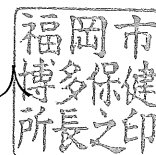 福岡市
博多保健
所長之印
人